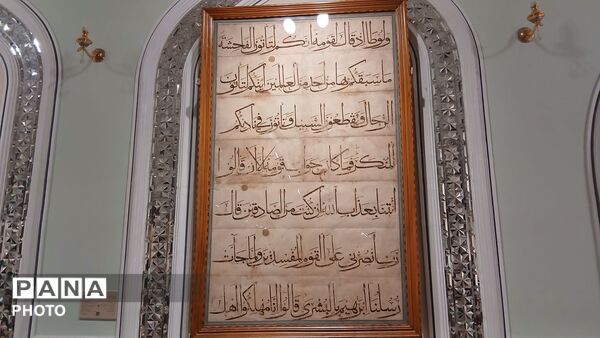 ولوطا اذ قال لقومه انكم لتاتون الفحشة
ما سبقكم بها من احد من العلمين ائنكم لتاتون
الرجال وتقطعون السبيل وتاتون في ناديكم
المنكر فما كان جواب قومه الا ان قالوا
ائتنا بعذاب الله ان كنت من الصادقين قال
رب انصرني على القوم المفسدين ولما جات
رسلنا ابرهيم بالبشرى قالوا انا مهلكوا اهل
PANA
PHOTO